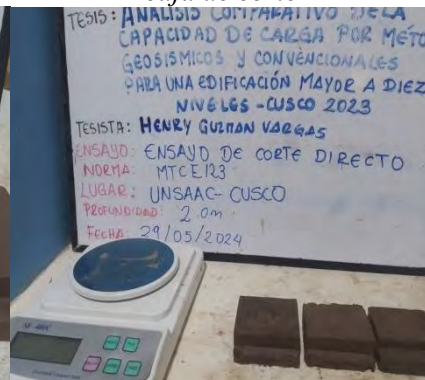 TESIS: ANÁLISIS COMPARATIVO DE LA
CAPACIDAD DE CARGA POR MÉTO
GEOSISMICOS Y CONVENCIONALES
PARA UNA EDIFICACIÓN MAYOR A DIEZ
NIVELES - CUSCO 2023
TESISTA: HENRY GUZMAN VARGAS
ENSAYO: ENSAYO DE CORTE DIRECTO
NORMA: MTC E123
LUGAR: UNSAAC - CUSCO
PROFUNDIDAD: 2.0m
FECHA: 29/05/2024